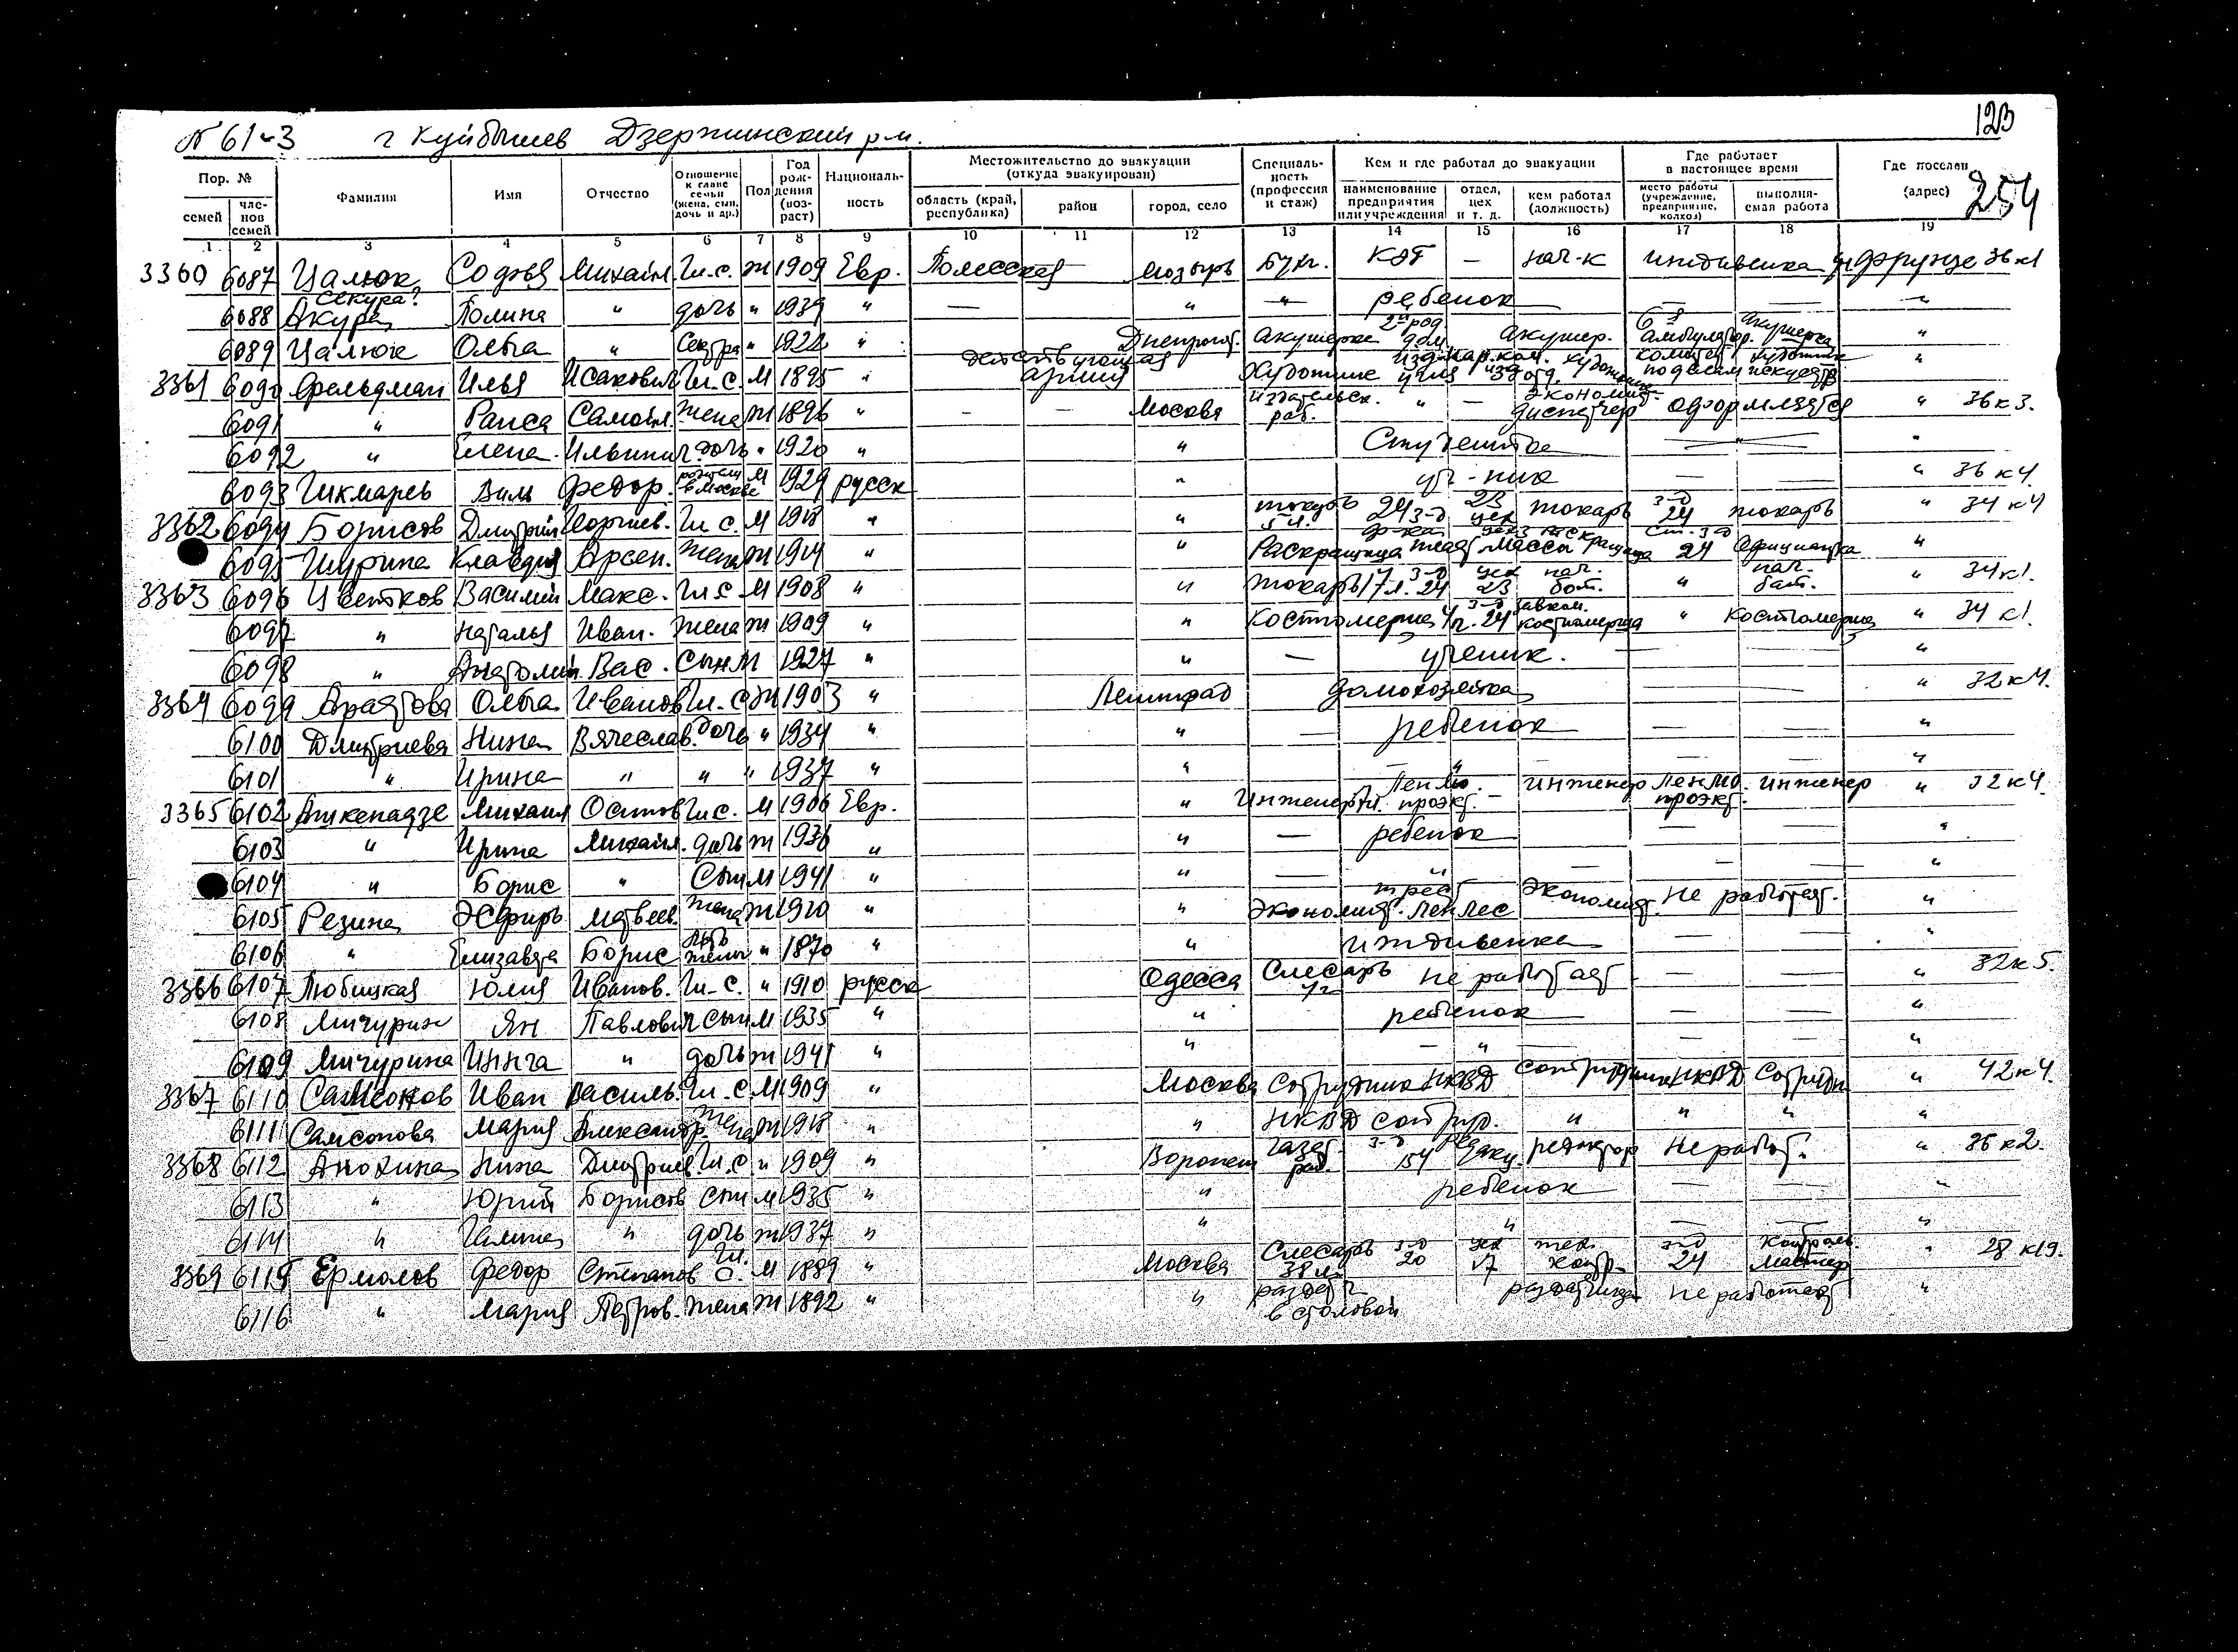 № 61-3 г Куйбышев Дзержинский р-н. 123
254
Пор. № Фамилия Имя Отчество Отношение к главе семьи (жена, сын, дочь и др.) Пол Год рождения (возраст) Националь-ность Местожительство до эвакуации (откуда эвакуирован) Специаль-ность (профессия и стаж) Кем и где работал до эвакуации Где работает в настоящее время Где поселен (адрес)
семей чле-нов семей область (край, республика) район город, село наименование предприятия или учреждения отдел, цех и т. д. кем работал (должность) место работы (учреждение, предприятие, колхоз) выполня-емая работа
1 2 3 4 5 6 7 8 9 10 11 12 13 14 15 16 17 18 19
3360 6087 Цалюк Софья Михайл. Гл.с. ж 1909 Евр. Полесская Мозырь Бухг. — нач-к иждивенка ул. Фрунзе 36 к1
6088 Секура? Акура Полина " дочь " 1939 " — " — ребенок — — "
6089 Цалюк Ольга " Сестра " 1922 " Днепропет. акушерка 2-й род. дом. акушер. амбулатор. акушерка "
3361 6090 Фельдман Илья Исакович Гл.с. М 1895 " действующая армия Художник "
6091 " Раиса Самойл. жена ж 1896 " — — Москва Издательск. раб. " — экономист диспетчер оформляется " 36 к 3.
6092 " Елена Ильинич. дочь " 1920 " " Студентка — " — "
6093 Шкмарев Виль Федор. в Москве М 1929 русск " уч-ник — — " 36 к 4
3362 6094 Борисов Дмитрий Георгиев. Гл.с. М 1918 " " токарь 24 з-д 23 цех токарь з-д 24 токарь " 34 к 4
6095 Шурина Клавдия Арсен. жена ж 1914 " " Раскрашица 24 Официантка "
3363 6096 Цветков Василий Макс. Гл.с М 1908 " " токарь 17 л. з-д 24 цех 23 нач. " нач. " 34 к1.
6097 " Наталья Иван. жена ж 1909 " " Костюмерша з-д 24 завком. костюмерша " Костюмерша " 34 к1.
6098 " Анатолий Вас. сын М 1927 " " — ученик. — — "
3364 6099 Араятова Ольга Иванов Гл.с ж 1903 " Ленинград домохозяйка — — " 32 к 4.
6100 Дмитриева Нина Вячеслав. дочь " 1934 " " — ребенок — — "
6101 " Ирина " " " 1937 " " — " — — "
3365 6102 Михаил Осипов Гл.с. М 1906 Евр. " Инженер проэкт. — инженер проэкт. инженер " 32 к 4.
6103 " Ирина Михайл. дочь ж 1936 " " — ребенок — — "
6104 " Борис " Сын М 1941 " " — " — — — "
6105 Резина Эсфирь Матвеев. жена ж 1910 " " Экономист. трест Ленлес Экономист. не работает. "
6106 " Елизавета Борис мать жены " 1870 " " иждивенка — — "
3366 6107 Любицкая Юлия Иванов. Гл-с. " 1910 русск Одесса Слесарь не работает — — " 32 к 5.
6108 Мичурин Ян Павлович сын М 1935 " " ребенок — — "
6109 Мичурина Инга " дочь ж 1941 " " — " — — "
3367 6110 Самсонов Иван Василь. Гл.с М 1909 " Москва Сотрудник НКВД сотрудник НКВД Сотрудн " 42 к 4.
6111 Самсонова Мария Александр. жена ж 1918 " " НКВД сотруд. " " " "
3368 6112 Анохина Нина Дмитриев Гл.с " 1909 " Воронеж газет. раб. з-д 154 редактор Не работ. " 36 к 2.
6113 " Юрий Борисов сын М 1935 " " ребенок — — "
6114 " Галина " дочь ж 1937 " " " — — "
3369 6115 Ермолов Федор Степанов Гл. с. М 1889 " Москва Слесарь 38 л. з-д 20 цех 17 тех. контр. з-д 24 контроль. мастер " 28 к 19.
6116 " Мария Петров. жена ж 1892 " " раздатч в столовой раздатчица не работает "